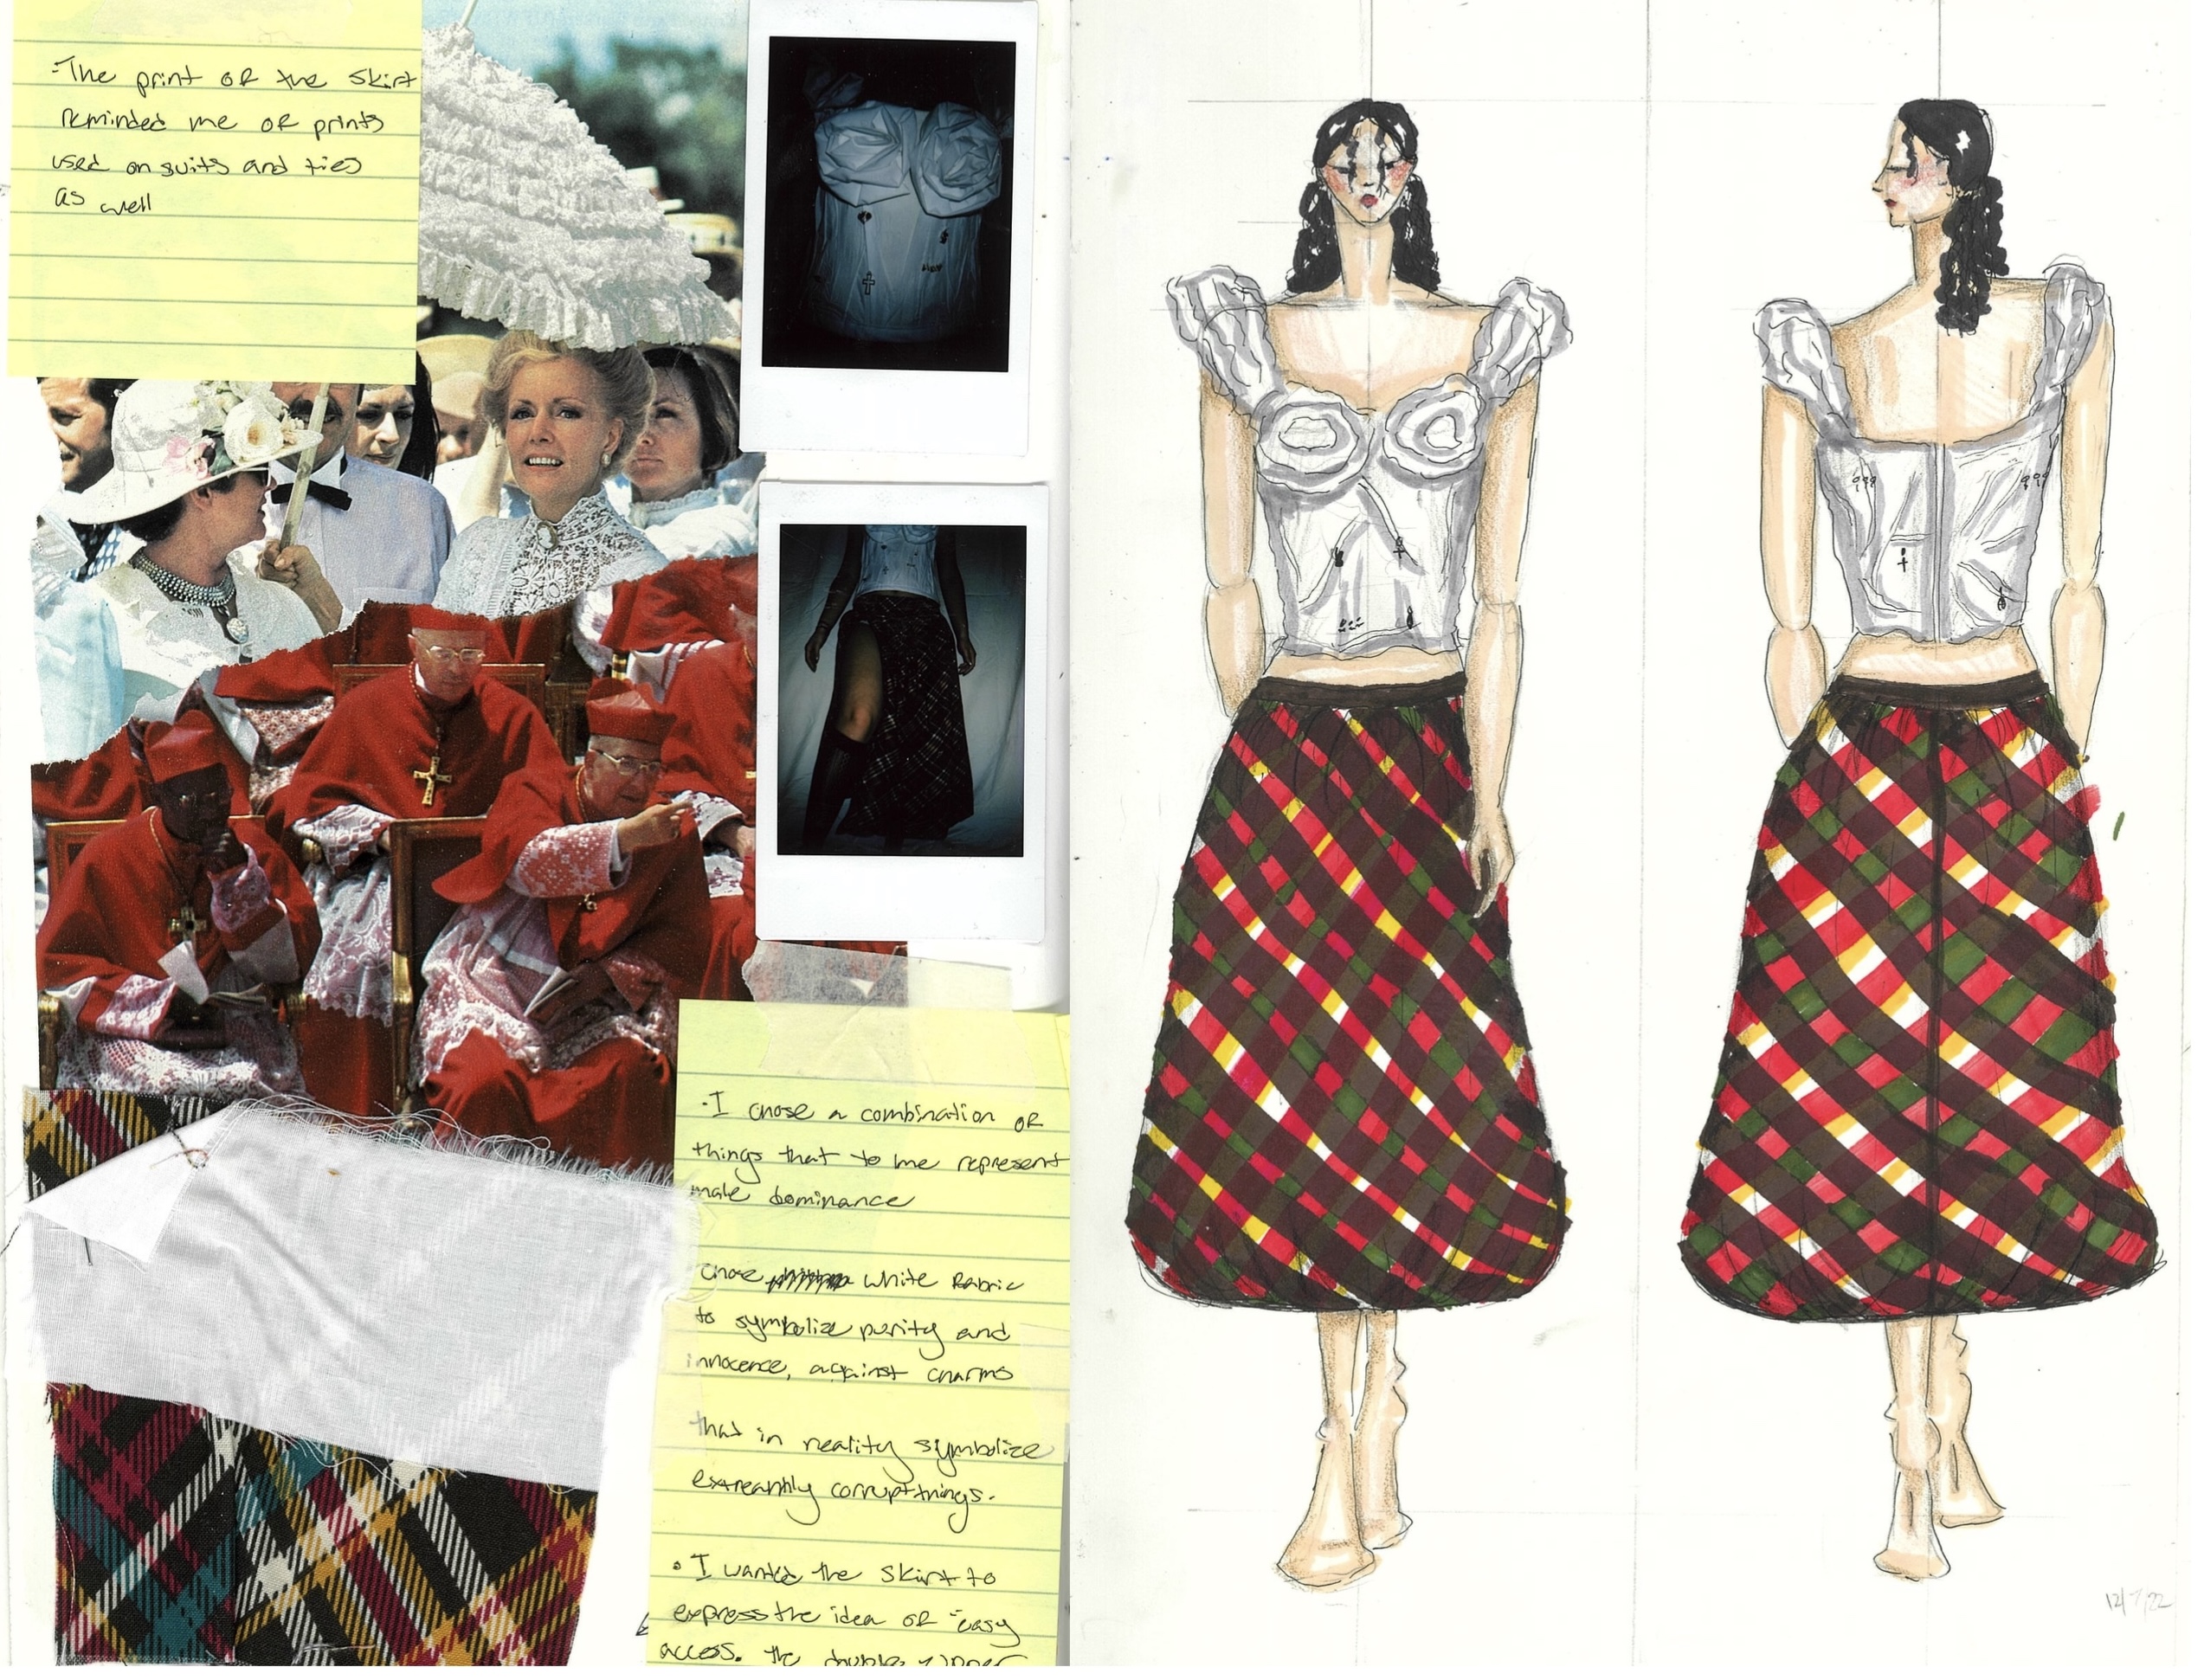 -The print of the skirt
reminded me of prints
used on suits and ties
as well
-I chose a combination of
things that to me represent
male dominance
chose white fabric
to symbolize purity and
innocence, against charms
that in reality symbolize
extreamhly corrupt things.
• I wanted the skirt to
express the idea of "easy
access. the double zipper
12/7/22